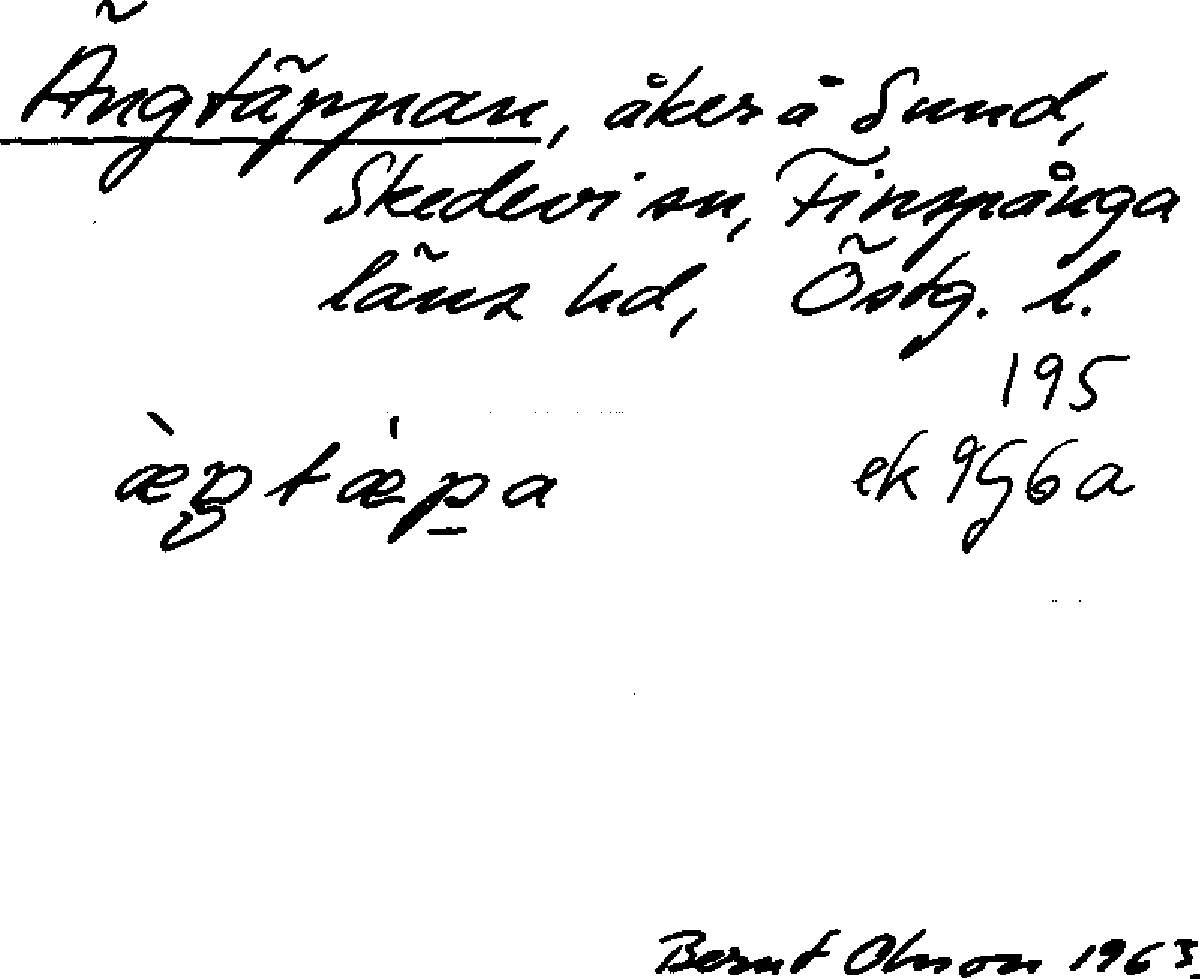 Ängtäppan, åker å Sund,
Skedevi sn, Finspånga
läns hd, Östg. l.
195
æ̀ŋtæ̀p̠a ek 9G6a
Bernt Olsson 1963